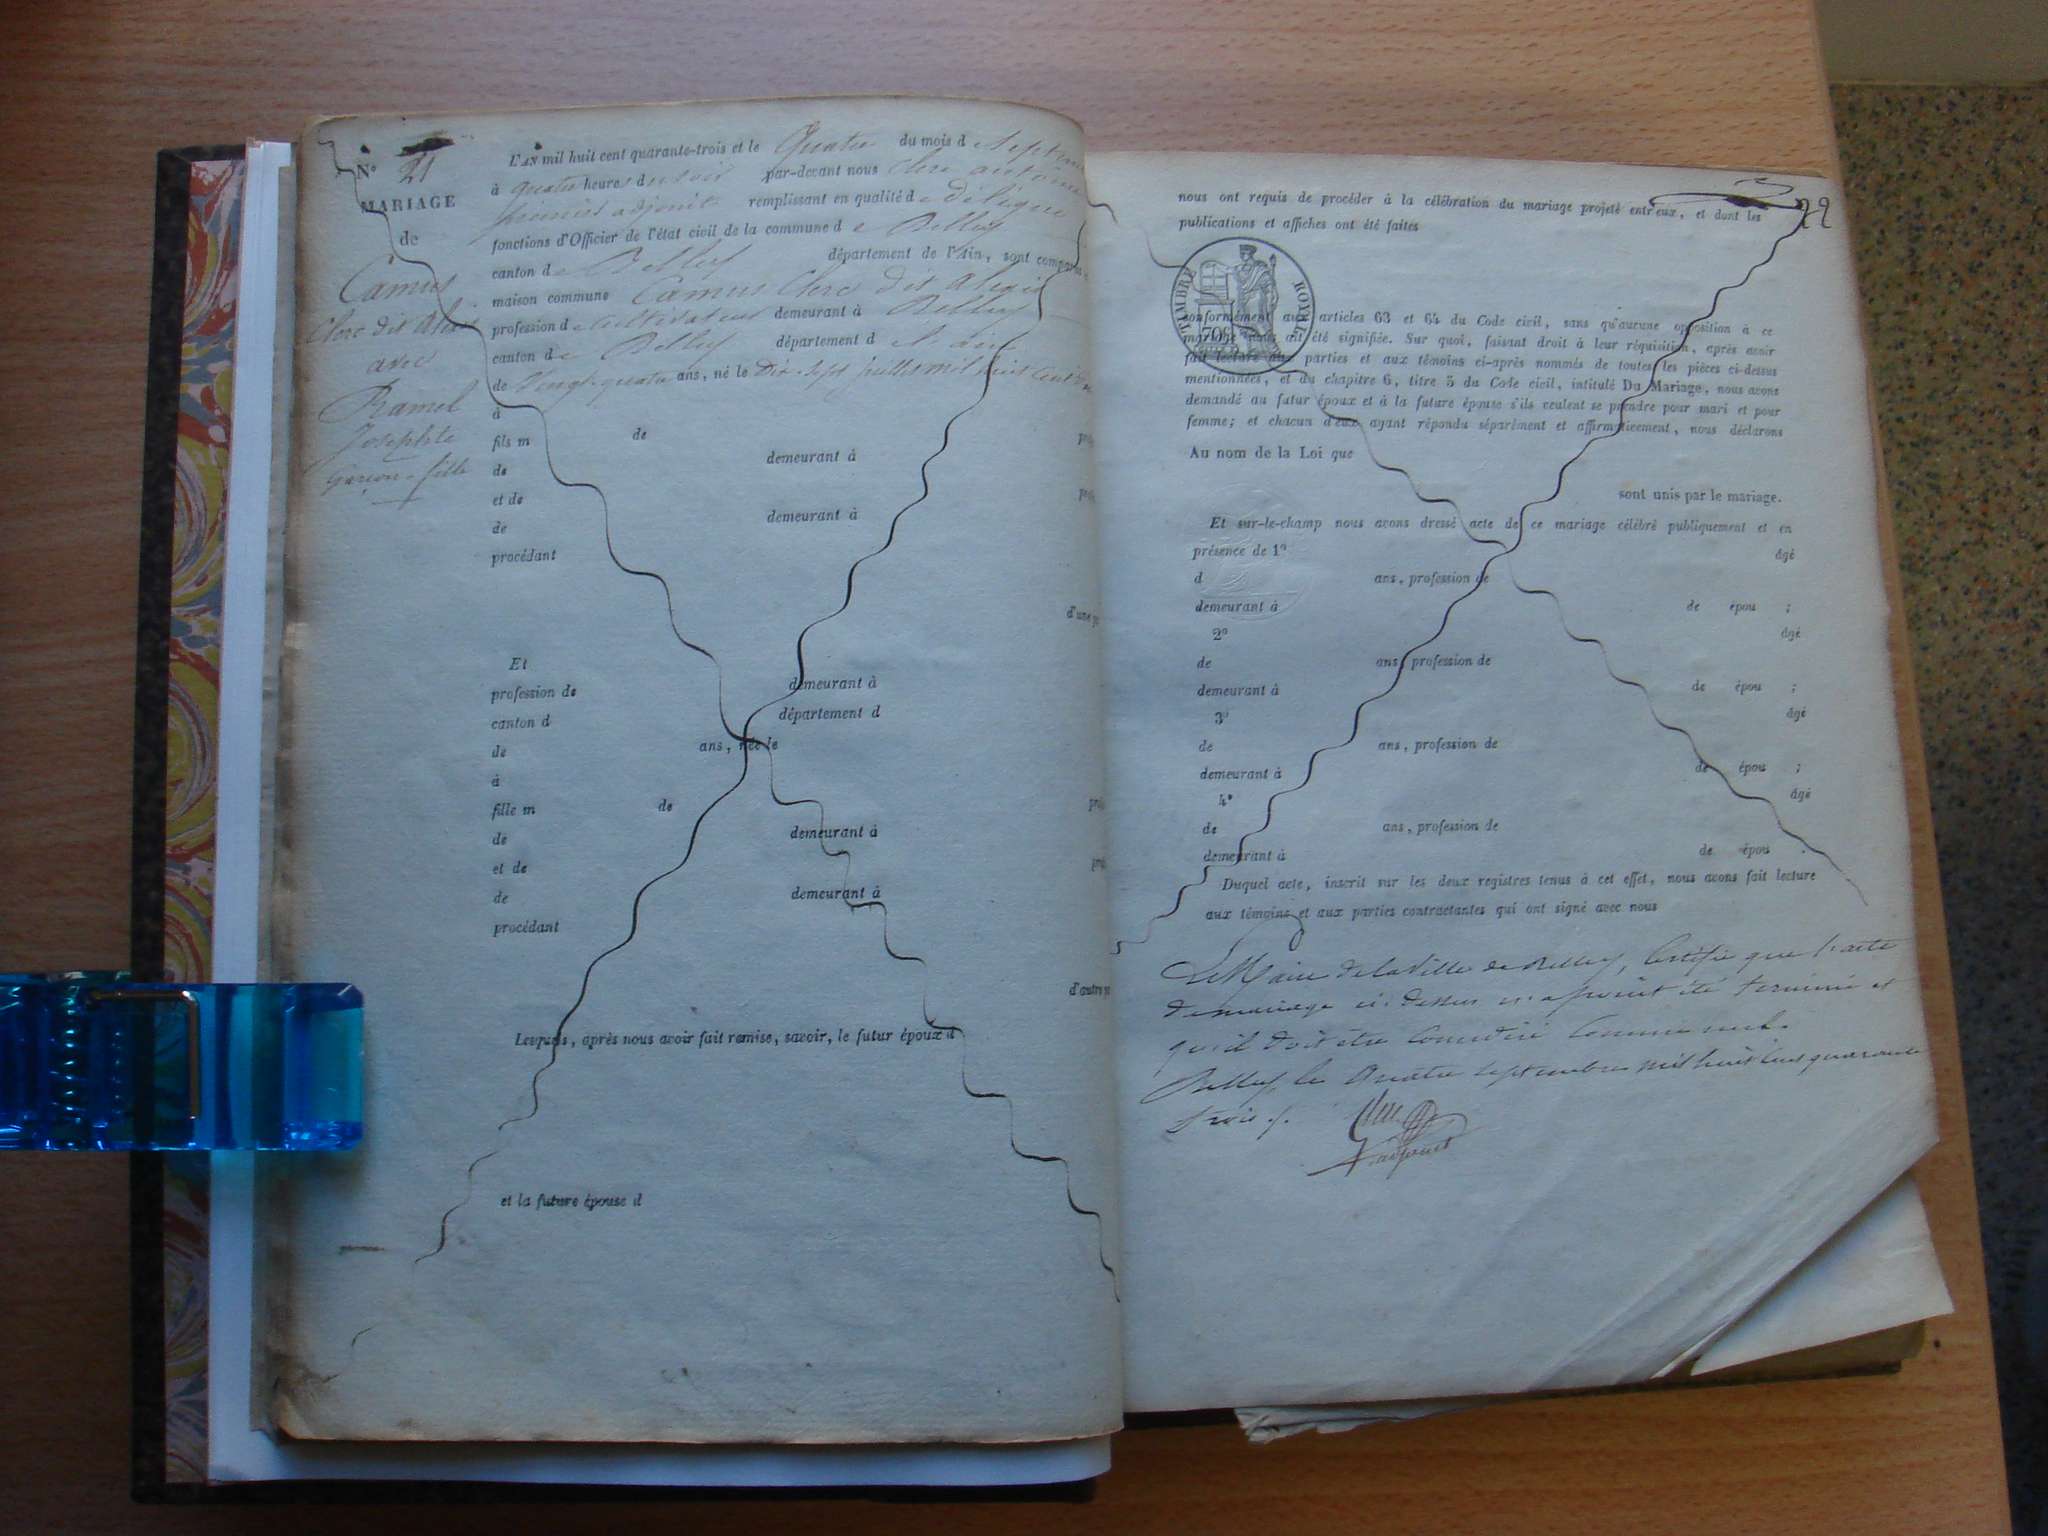 N° 21
MARIAGE
de
Camus
Clerc dit Alexis
avec
Ramel
Josephte
Garçon - fille
L'AN mil huit cent quarante-trois et le Quatre du mois d
à quatre heures du soir par-devant nous Clerc antoine
premier adjoint remplissant en qualité de délégué
fonctions d'Officier de l'état civil de la commune de Belley
canton de Belley département de l'Ain, sont
maison commune Camus Clerc dit Alexis
profession de Cultivateur demeurant à Belley
canton de Belley département d
de vingt-quatre ans, né le Dix-sept mil huit cent
à
fils m de
de demeurant à
et de
de demeurant à
procédant
d'une
Et
profession de demeurant à
canton d département d
de ans, née le
à
fille m de
de demeurant à
et de
de demeurant à
procédant
d'autre
Lesquels, après nous avoir fait remise, savoir, le futur époux d
et la future épouse d
22
nous ont requis de procéder à la célébration du mariage projeté entr'eux, et dont les
publications et affiches ont été faites
TIMBRE ROYAL
70c
conformément aux articles 63 et 64 du Code civil, sans qu'aucune opposition à ce
mariage nous ait été signifiée. Sur quoi, faisant droit à leur réquisition, après avoir
fait lecture aux parties et aux témoins ci-après nommés de toutes les pièces ci-dessus
mentionnées, et du chapitre 6, titre 5 du Code civil, intitulé Du Mariage, nous avons
demandé au futur époux et à la future épouse s'ils veulent se prendre pour mari et pour
femme; et chacun d'eux ayant répondu séparément et affirmativement, nous déclarons
Au nom de la Loi que
sont unis par le mariage.
Et sur-le-champ nous avons dressé acte de ce mariage célébré publiquement et en
présence de 1° âgé
d ans, profession de
demeurant à de épou ;
2° âgé
de ans, profession de
demeurant à de épou ;
3° âgé
de ans, profession de
demeurant à de épou ;
4° âgé
de ans, profession de
demeurant à de épou .
Duquel acte, inscrit sur les deux registres tenus à cet effet, nous avons fait lecture
aux témoins et aux parties contractantes qui ont signé avec nous
Le Maire de la Ville de Belley, Certifie que l'acte
de mariage ci-dessus n'a point été terminé et
qu'il doit être considéré comme nul.
Belley, le Quatre septembre mil huit cent quarante
trois
adjoint